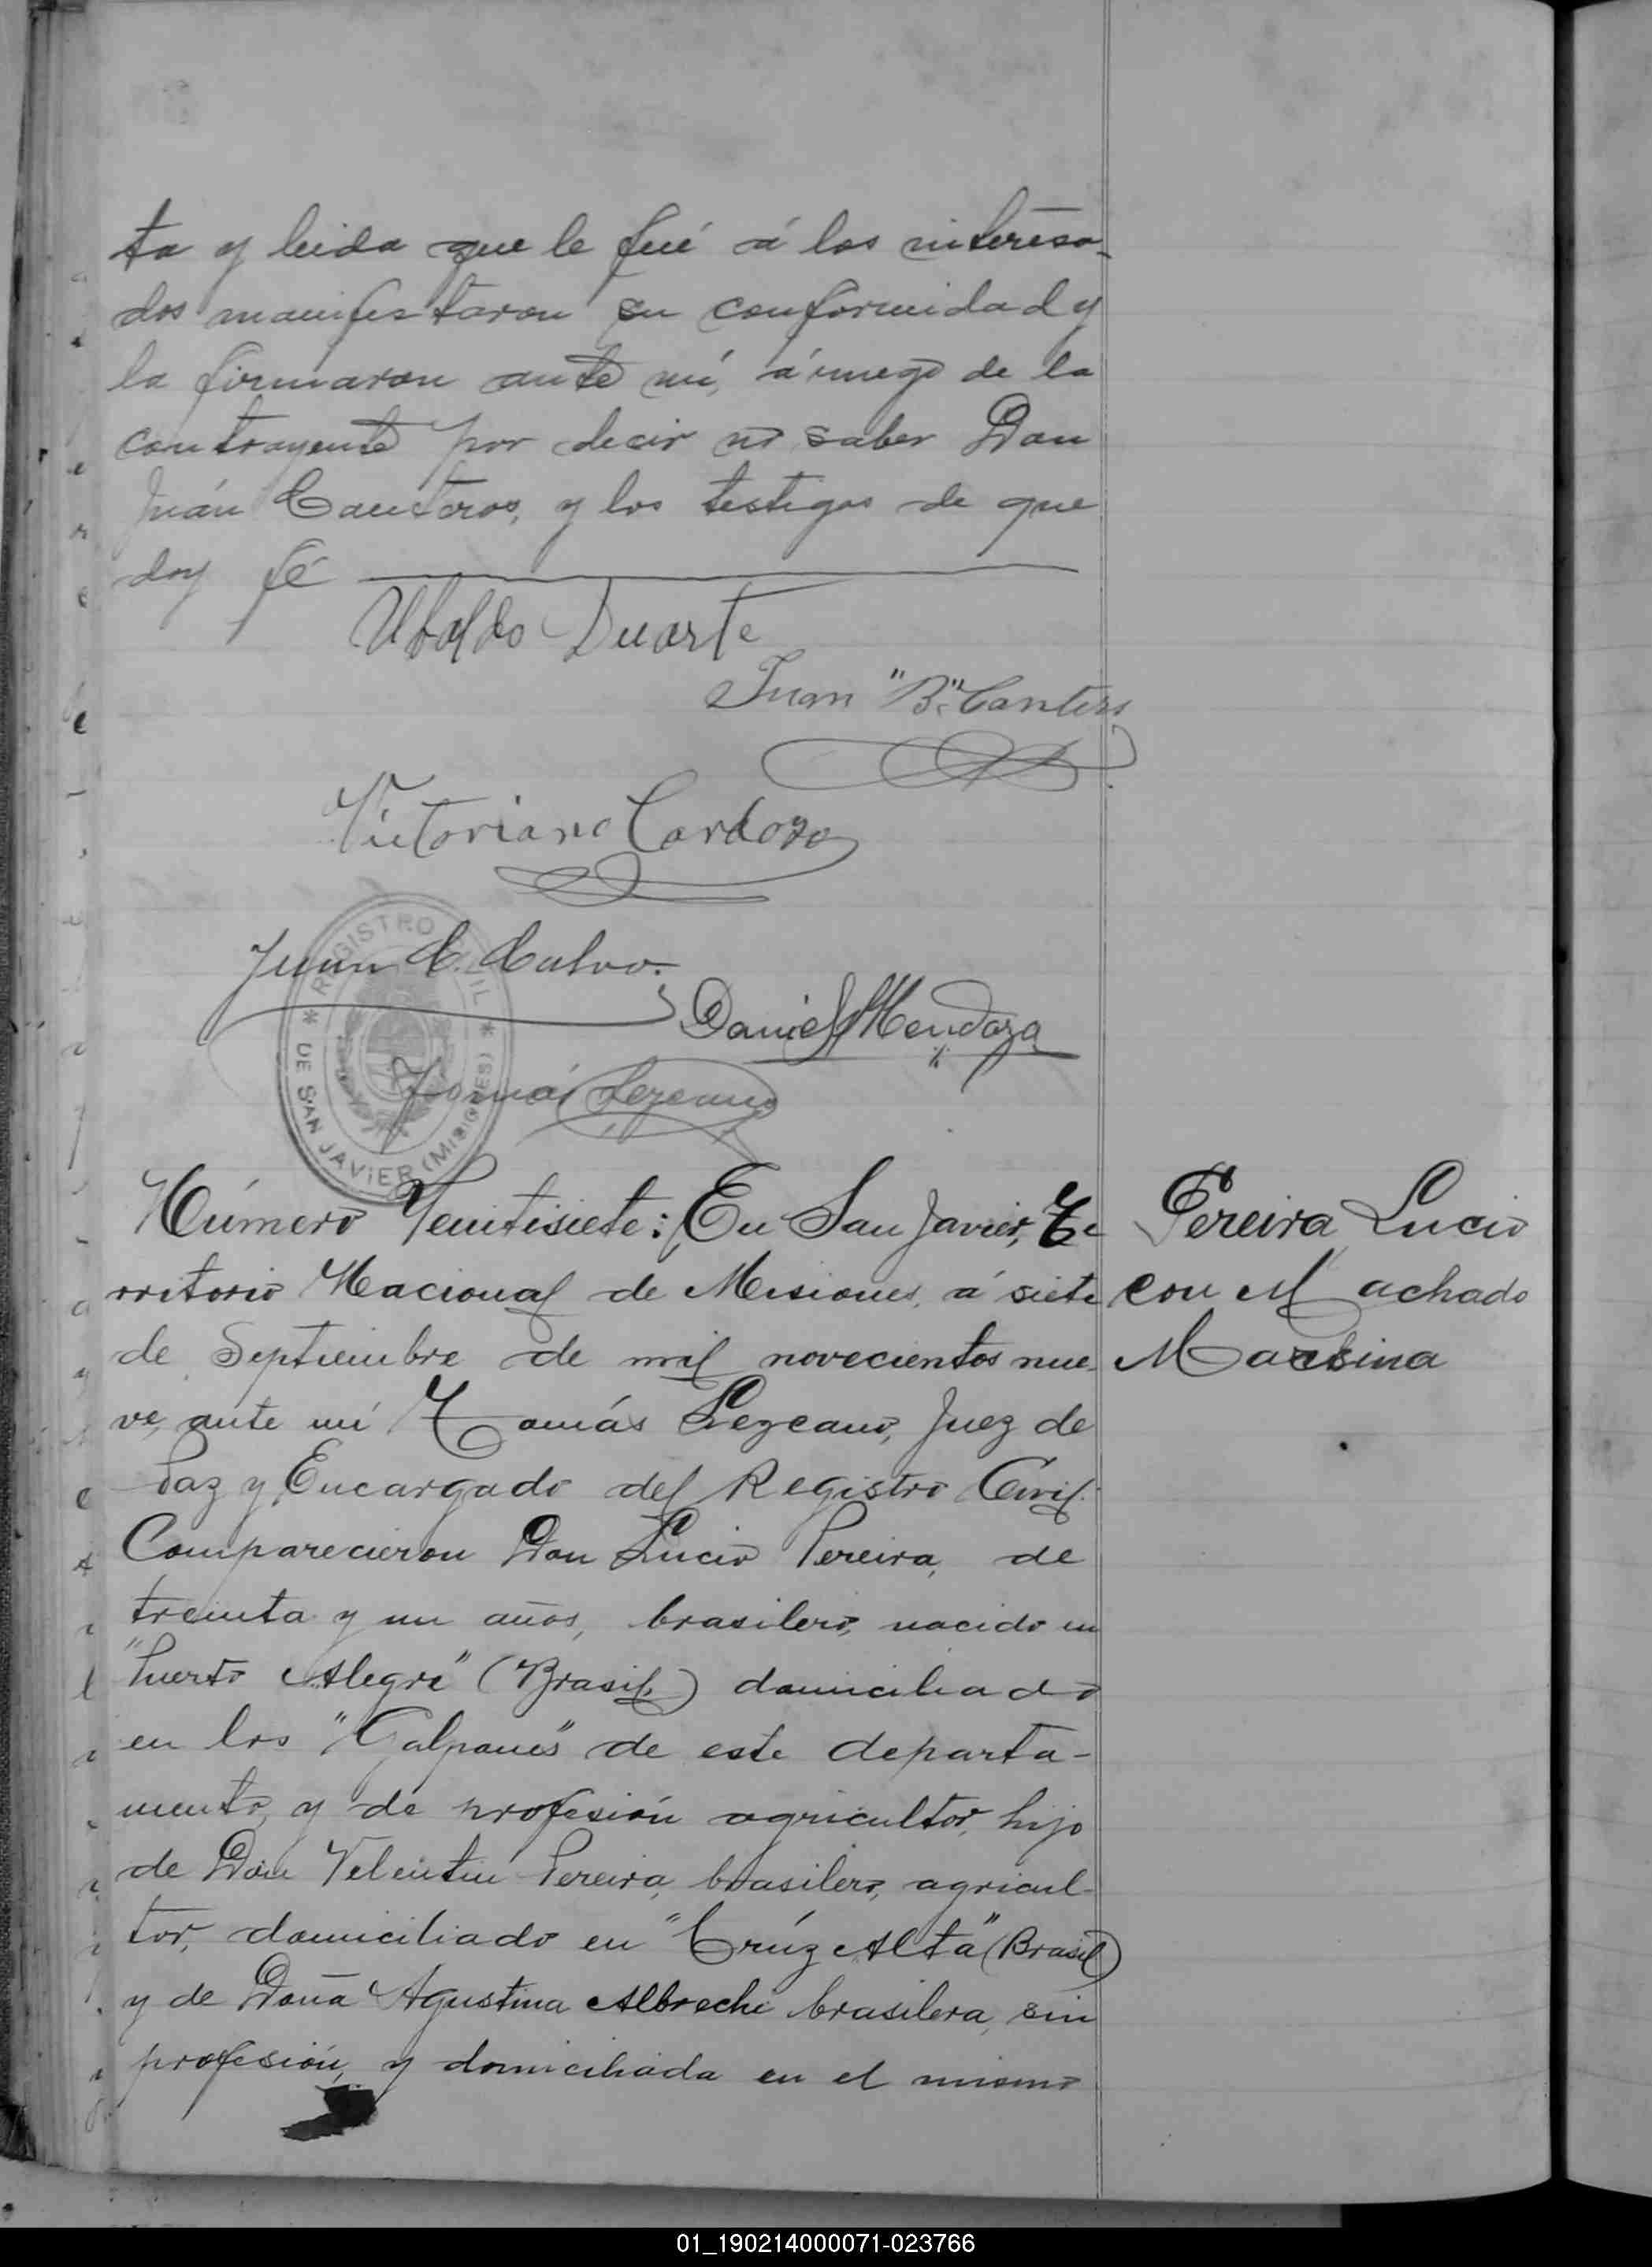 ta y leida que le fué á los interesa-
dos manifestaron su conformidad y
la firmaron ante mí, á ruego de la
contrayente por decir no saber Don
Juán Canteros, y los testigos de que
doy fé
Ubaldo Duarte
Juan "B." Canteros
Victoriano Cardozo
Juan C. Calvo.
Daniel Mendoza
Tomás Lezcano
REGISTRO CIVIL
* DE SAN JAVIER (MISIONES) *
Número Veintisiete: En San Javier, Te
rritorio Nacional de Misiones, á siete
de Septiembre de mil novecientos nue-
ve, ante mí Tomás Lezcano, Juez de
Paz y Encargado del Registro Civil.
Comparecieron Don Lucio Pereira, de
treinta y un años, brasilero, nacido en
"Puerto Alegre" (Brasil) domiciliado
en los "Galpones" de este departa-
mento, y de profesión agricultor, hijo
de Don Velentin Pereira, brasilero, agricul-
tor, domiciliado en "Crúz Alta" (Brasil)
y de Doña Agustina Albreche brasilera, sin
profesión, y domiciliada en el mismo
Pereira Lucio
con Machado
01_190214000071-023766